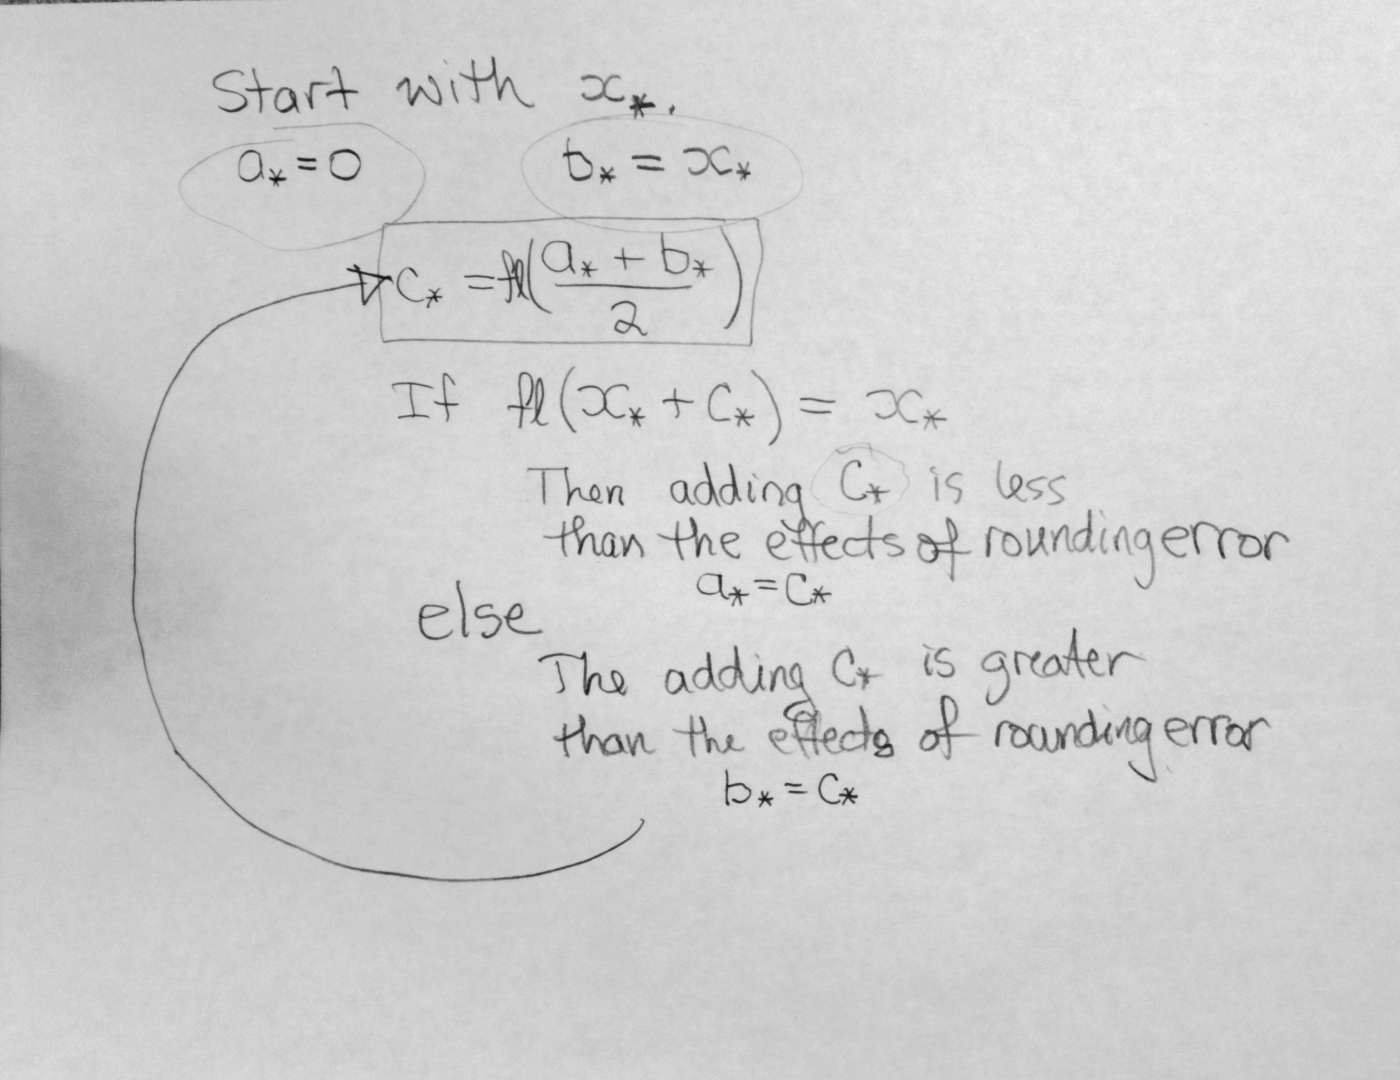 Start with x*.
a* = 0 b* = x*
c* = fl((a* + b*)/2)
If fl(x* + c*) = x*
Then adding c* is less
than the effects of rounding error
a* = c*
else
The adding c* is greater
than the effects of rounding error
b* = c*